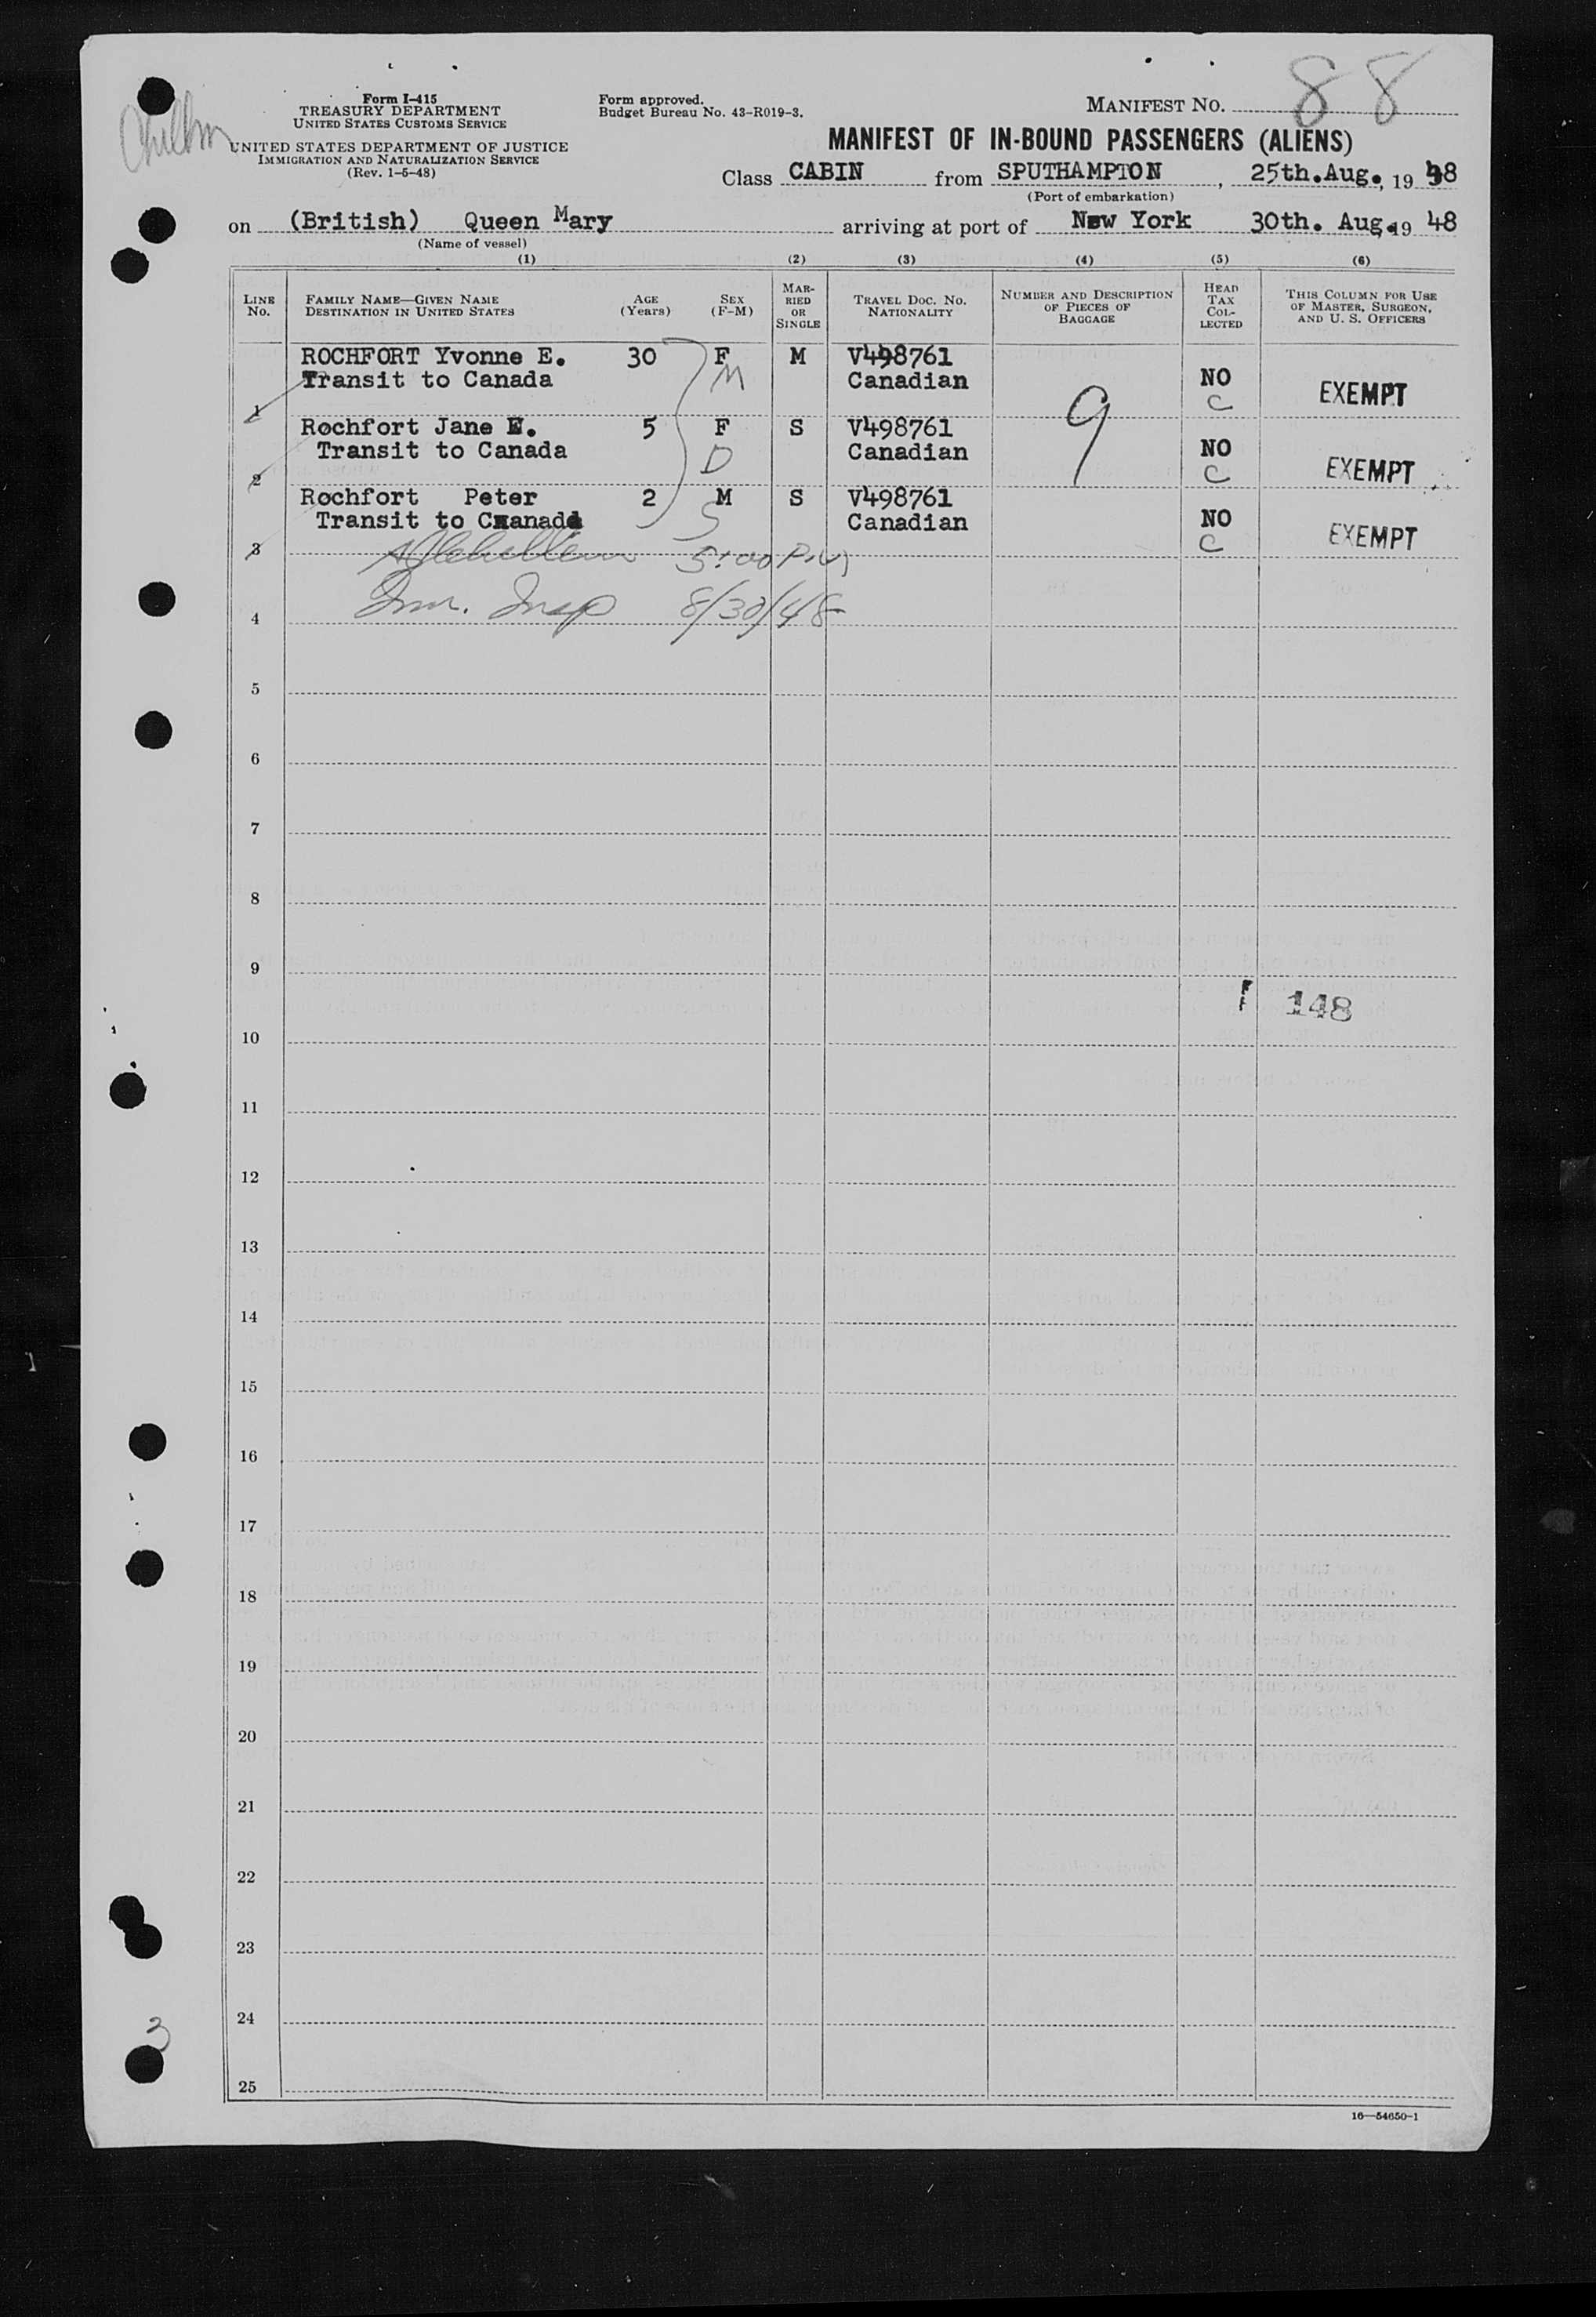 Form I-415
TREASURY DEPARTMENT
UNITED STATES CUSTOMS SERVICE
UNITED STATES DEPARTMENT OF JUSTICE
IMMIGRATION AND NATURALIZATION SERVICE
(Rev. 1-5-48)
Form approved.
Budget Bureau No. 43-R019-3.
MANIFEST NO. 88
MANIFEST OF IN-BOUND PASSENGERS (ALIENS)
Class CABIN from SPUTHAMPTON, 25th.Aug., 19 48
(Port of embarkation)
on (British) Queen Mary arriving at port of New York 30th. Aug. 19 48
(Name of vessel)
(1) (2) (3) (4) (5) (6)
LINE No.
FAMILY NAME—GIVEN NAME
DESTINATION IN UNITED STATES
AGE (Years)
SEX (F-M)
MARRIED OR SINGLE
TRAVEL DOC. NO. NATIONALITY
NUMBER AND DESCRIPTION OF PIECES OF BAGGAGE
HEAD TAX COLLECTED
THIS COLUMN FOR USE OF MASTER, SURGEON, AND U. S. OFFICERS
ROCHFORT Yvonne E. 30 F M V498761
1 Transit to Canada M Canadian 9 NO C EXEMPT
Rochfort Jane E. 5 F S V498761
2 Transit to Canada D Canadian NO C EXEMPT
Rochfort Peter 2 M S V498761
3 Transit to Cxanada S Canadian NO C EXEMPT
5:00 P.M
4 Imm. Insp 8/30/48
5
6
7
8
9
148
10
11
12
13
14
15
16
17
18
19
20
21
22
23
24
3
25
16—54650-1